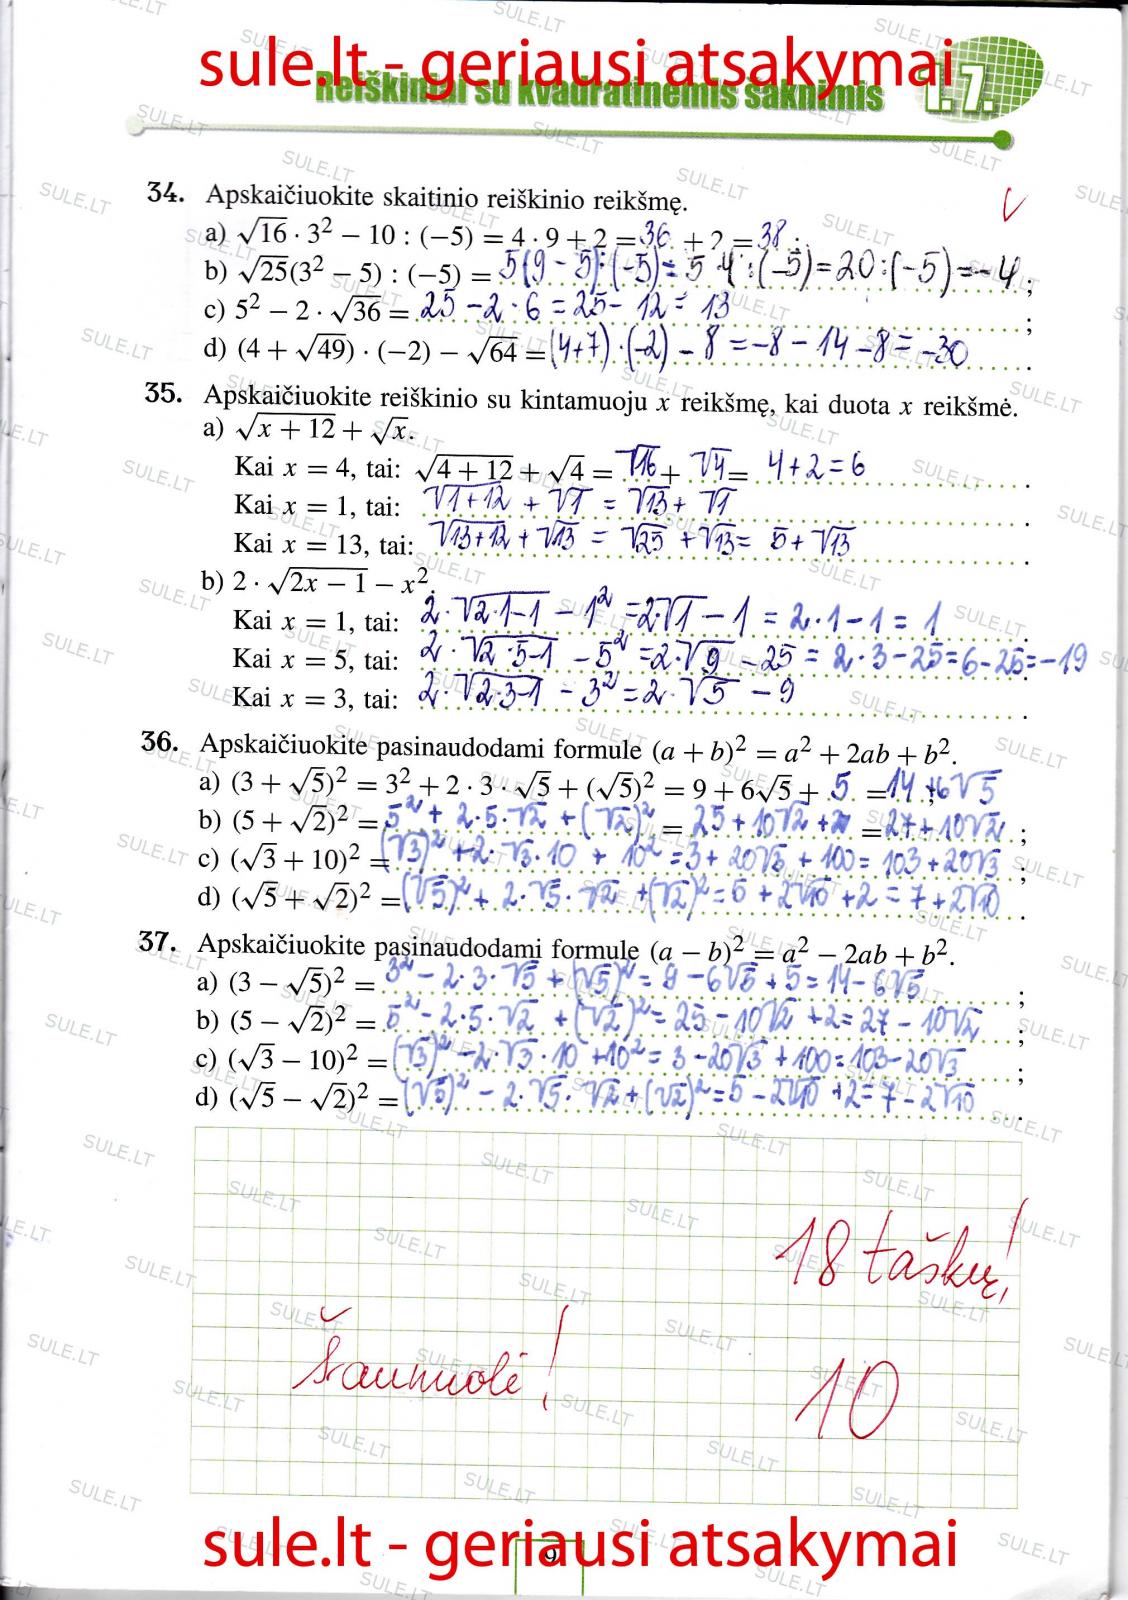 sule.lt - geriausi atsakymai
Reiškiniai su kvadratinėmis šaknimis 1.7.
34. Apskaičiuokite skaitinio reiškinio reikšmę.
a) √16 · 3² − 10 : (−5) = 4 · 9 + 2 = 36 + 2 = 38 ;
b) √25(3² − 5) : (−5) = 5(9 − 5):(−5) = 5·4:(−5) = 20:(−5) = −4 ;
c) 5² − 2 · √36 = 25 − 2 · 6 = 25 − 12 = 13 ;
d) (4 + √49) · (−2) − √64 = (4+7) · (−2) − 8 = −8 − 14 − 8 = −30 .
35. Apskaičiuokite reiškinio su kintamuoju x reikšmę, kai duota x reikšmė.
a) √(x + 12) + √x.
Kai x = 4, tai: √(4 + 12) + √4 = √16 + √4 = 4+2=6 .
Kai x = 1, tai: √(1+12) + √1 = √13 + √1 .
Kai x = 13, tai: √(13+12) + √13 = √25 + √13 = 5+√13 .
b) 2 · √(2x − 1) − x².
Kai x = 1, tai: 2·√(2·1−1) − 1² = 2·√1 − 1 = 2·1−1 = 1 .
Kai x = 5, tai: 2·√(2·5−1) − 5² = 2·√9 − 25 = 2·3−25=6−25=−19 .
Kai x = 3, tai: 2·√(2·3−1) − 3² = 2·√5 − 9 .
36. Apskaičiuokite pasinaudodami formule (a + b)² = a² + 2ab + b².
a) (3 + √5)² = 3² + 2 · 3 · √5 + (√5)² = 9 + 6√5 + 5 = 14+6√5 ;
b) (5 + √2)² = 5² + 2·5·√2 + (√2)² = 25+10√2+2 = 27+10√2 ;
c) (√3 + 10)² = (√3)² + 2·√3·10 + 10² = 3+20√3+100 = 103+20√3 ;
d) (√5 + √2)² = (√5)² + 2·√5·√2 + (√2)² = 5+2√10+2 = 7+2√10 .
37. Apskaičiuokite pasinaudodami formule (a − b)² = a² − 2ab + b².
a) (3 − √5)² = 3² − 2·3·√5 + (√5)² = 9 − 6√5 + 5 = 14−6√5 ;
b) (5 − √2)² = 5² − 2·5·√2 + (√2)² = 25−10√2+2 = 27−10√2 ;
c) (√3 − 10)² = (√3)² − 2·√3·10+10² = 3−20√3+100 = 103−20√3 ;
d) (√5 − √2)² = (√5)² − 2·√5·√2 + (√2)² = 5−2√10+2 = 7−2√10 .
18 taškų!
Šaunuolė!
10
sule.lt - geriausi atsakymai
9